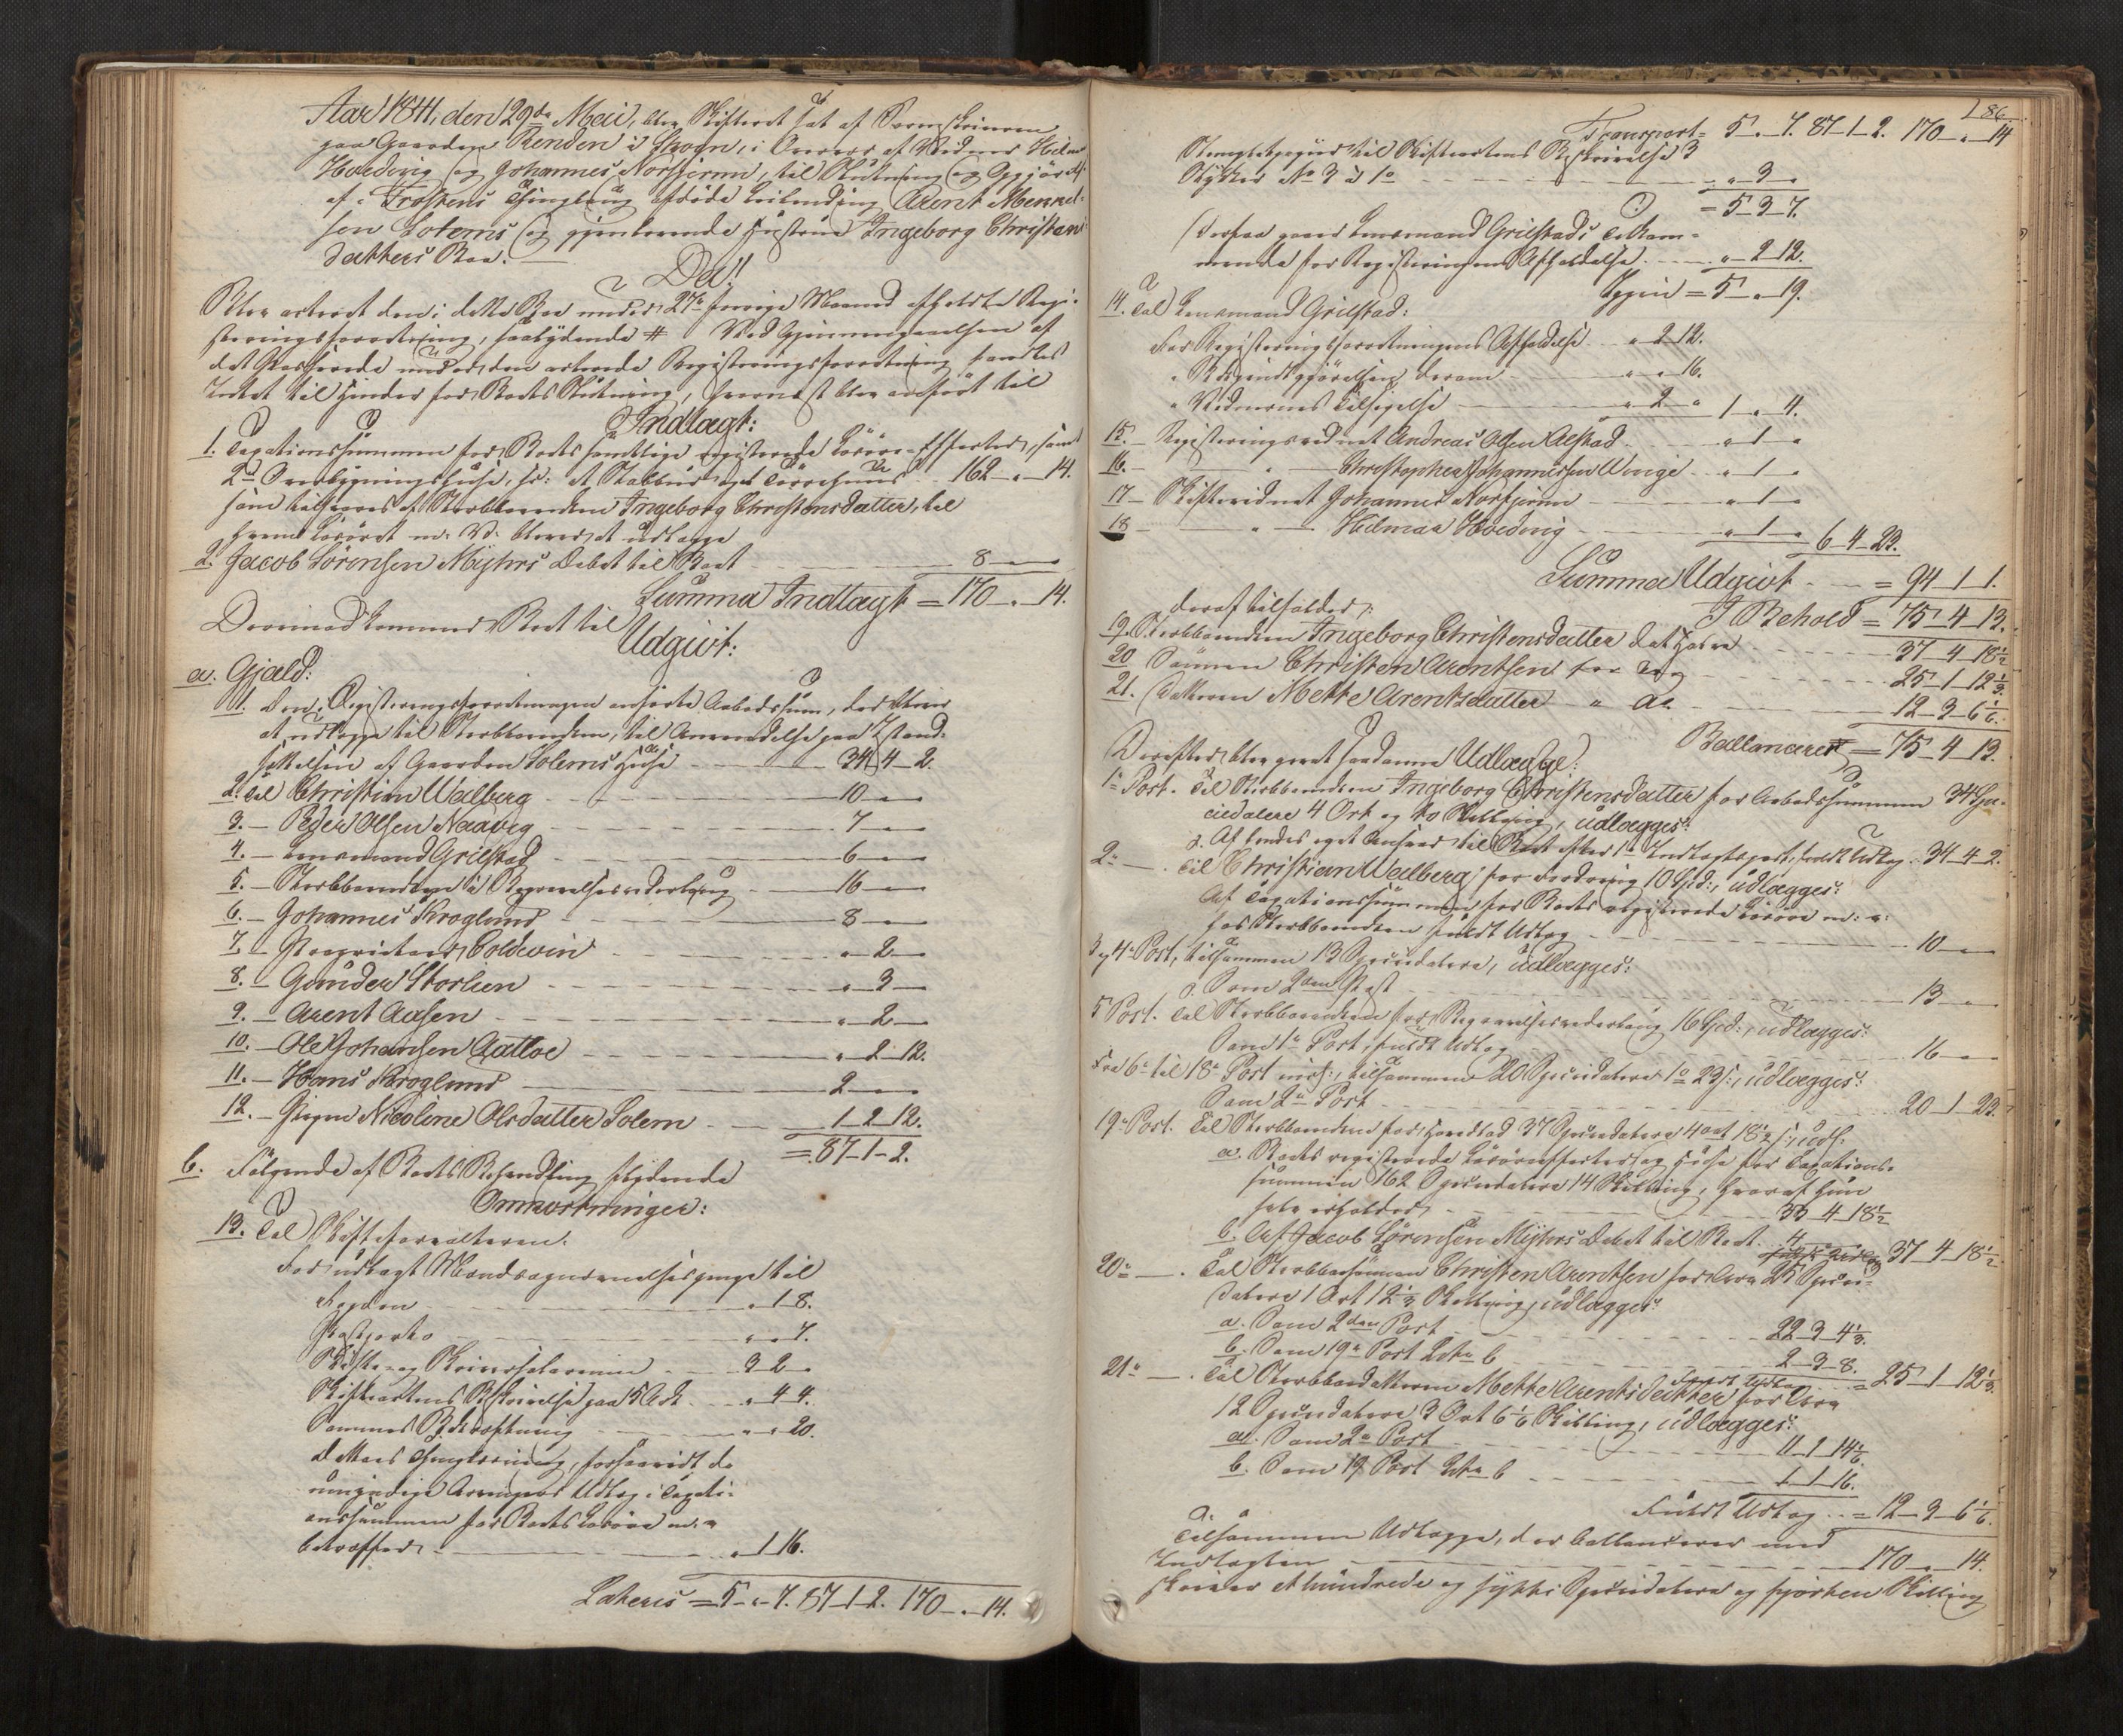 Aar 1841, den 29de Mai, blev Skifteret sat af Sorenskriveren
paa Gaarden Renden i Skogn, i Overvær af Vidner Hilmar
Hvedvig og Johannes Norhjerm, til Slutning og Opgjørelse
af Frostens Thinglaug afdøde Leilending Arent Mennel-
sen Solems og gjenlevende Hustrue Ingeborg Christens-
datters Boe.
Da!
Blev acteret den i dette Boe under 27de forrige Maaned afholdte Regi-
streringsforretning, saalydende # Ved Gjennemgaaelsen af
det Passerede under den acterede Registreringsforretning fandtes
Intet til Hinder for Boets Slutning, hvornæst blev anført til
Indtægt:
1. Taxationssummen for Boets samtlige registrerede Løsøre-Effecter, samt
2de Overbygningshuse, et Stabbur og et Tørrehuus 162 „ 14.
som tilsvares af Sterbboenken Ingeborg Christensdatter, til
hvem Løsøret m: V: bliver at udlægge
2. Jacob Sørensen Myhrs Debet til Boet 8
Summa Indtægt = 170 „ 14.
Derimod kommer Boet til
Udgivt:
a. Gjæld:
1. Den i Registreringsforretningen anførte Aabodssum, der bliver
at udlægge til Sterbboenken, til Anvendelse paa Istand-
sættelsen af Gaarden Solems Huse 34 4 2.
2. Til Christian Walberg 10
3. - Peder Olsen Naavig 7
4. - Lensmand Grilstad 6
5. - Sterbboenken i Begravelsesvederlaug 16
6. - Johannes Kroglund 8
7. - Proprietair Coldevin „ 2
8. - Gunder Storlien „ 3
9. - Arent Aasen „ 2
10. - Ole Johansen Aatloe „ 2 12.
11. - Hans Kroglund 2
12. - Pigen Nicoline Olsdatter Solem 1 2 12.
= 87 1 2.
b. Følgende af Boets Behandling flydende
Omkostninger:
13. Til Skifteforvalteren:
For udlagt
Fogden „ 1 8.
Postporto „ „ 7.
Skifte- og Skriversalarium 3 2
Skifteactens Beskrivelse paa 5 Ark „ 4 4.
Sammes Bekræftning „ „ 20.
dettes Thinglæsning, forsaavidt de
umyndige Arvingers Udlæg i Taxati-
onssummen for Boets Løsøre m: v
betræffer „ 1 16.
Lateris = 5 „ 7. 87 1 2. 170 „ 14.
186
Transport = 5 „ 7. 87 1 2. 170 „ 14
Stemplet papiir til Skifteactens Beskrivelse 3
Stykker No 3 „ 3 „
= 5 3 7.
Derfra gaaer Lensmand Grilstads Tilkom-
mende for Registreringens Afholdelse „ 2 12.
Igjen = 5 „ 19.
14. Til Lensmand Grilstad:
For Registreringsforretningens Afholdelse „ 2 12.
„ Bekjendtgjørelsen derom „ „ 16.
„ Vidnernes Tilsigelse „ 2 „ 1 „ 4.
15. - Registreringsvidnet Andreas Olsen Aelstad „ 1 „
16. - „ Christopher Johannessen Winge „ 1 „
17 - Skiftevidnet Johannes Norhjerm „ 1 „
18 - „ Hilmar Hvedvig „ 1 „ 6 4 23.
Summa Udgivt = 94 1 1.
I Behold = 75 4 13.
deraf tilfalder:
19. Sterbboenken Ingeborg Christensdatter det Halve 37 4 18½
20 Sønnen Christen Arentsen for Arv 25 1 12⅓.
21. Datteren Mette Arentsdatter „ do. 12 3 6⅙.
Ballancerer = 75 4 13.
Derefter blev gjort saadanne Udlægge:
1ste Post. Til Sterbboenken Ingeborg Christensdatter for Aabodssummen 34 Spe-
ciedaler 4 Ort og to Skilling, udlægges:
I hendes eget Ansvar til Boet efter 1ste Indtægtspost, fuldt Udlæg 34 4 2.
2. — . Til Christian Walberg, for Fordring 10 Spd:, udlægges:
Af Taxationssummen for Boets registrerede Løsøre m: v:
hos Sterbboenken fuldt Udlæg 10
3 og 4de Post, tilsammen 13 Speciedaler, udlægges:
Som 2den Post 13 „
5 Post. Til Sterbboenken for Begravelsesvederlaug 16 Spd:, udlægges:
Som 1ste Post, fuldt Udlæg 16
Fra 6te til 18de Post incl:, tilsammen 20 Speciedaler 1 Ort 23 s:, udlægges:
Som 2den Post 20 1 23.
19de Post. Til Sterbboenken for Hovedlod 37 Speciedaler 4 Ort 18½ s:, udl:
a. Boets registrerede Løsøreeffecter og Huse for Taxations-
summen 162 Speciedaler 14 Skilling, hvoraf hun
selv erholder 33 4 18½
b. Af Jacob Sørensen Myhrs Debet til Boet 4 37 4 18½.
20de — . Til Sterbboesønnen Christen Arentsen for Arv 25 Specie-
daler 1 Ort 12⅓ Skilling, udlægges:
a. Som 2den Post 22 3 4⅓.
b. Som 19de Post Litr b 2 3 8.
Fuldt Udlæg = 25 1 12⅓.
21de — . Til Sterbboedatteren Mette Arentsdatter for Arv
12 Speciedaler 3 Ort 6⅙ Skilling, udlægges:
a. Som 2den Post 11 1 14⅙.
b. Som 19 Post Litr b 1 1 16.
Fuldt Udlæg = 12 3 6⅙.
Tilsammen Udlægge, der ballancerer med
Indtægten 170 „ 14.
skriver et hundrede og sytti Speciedaler og fjorten Skilling